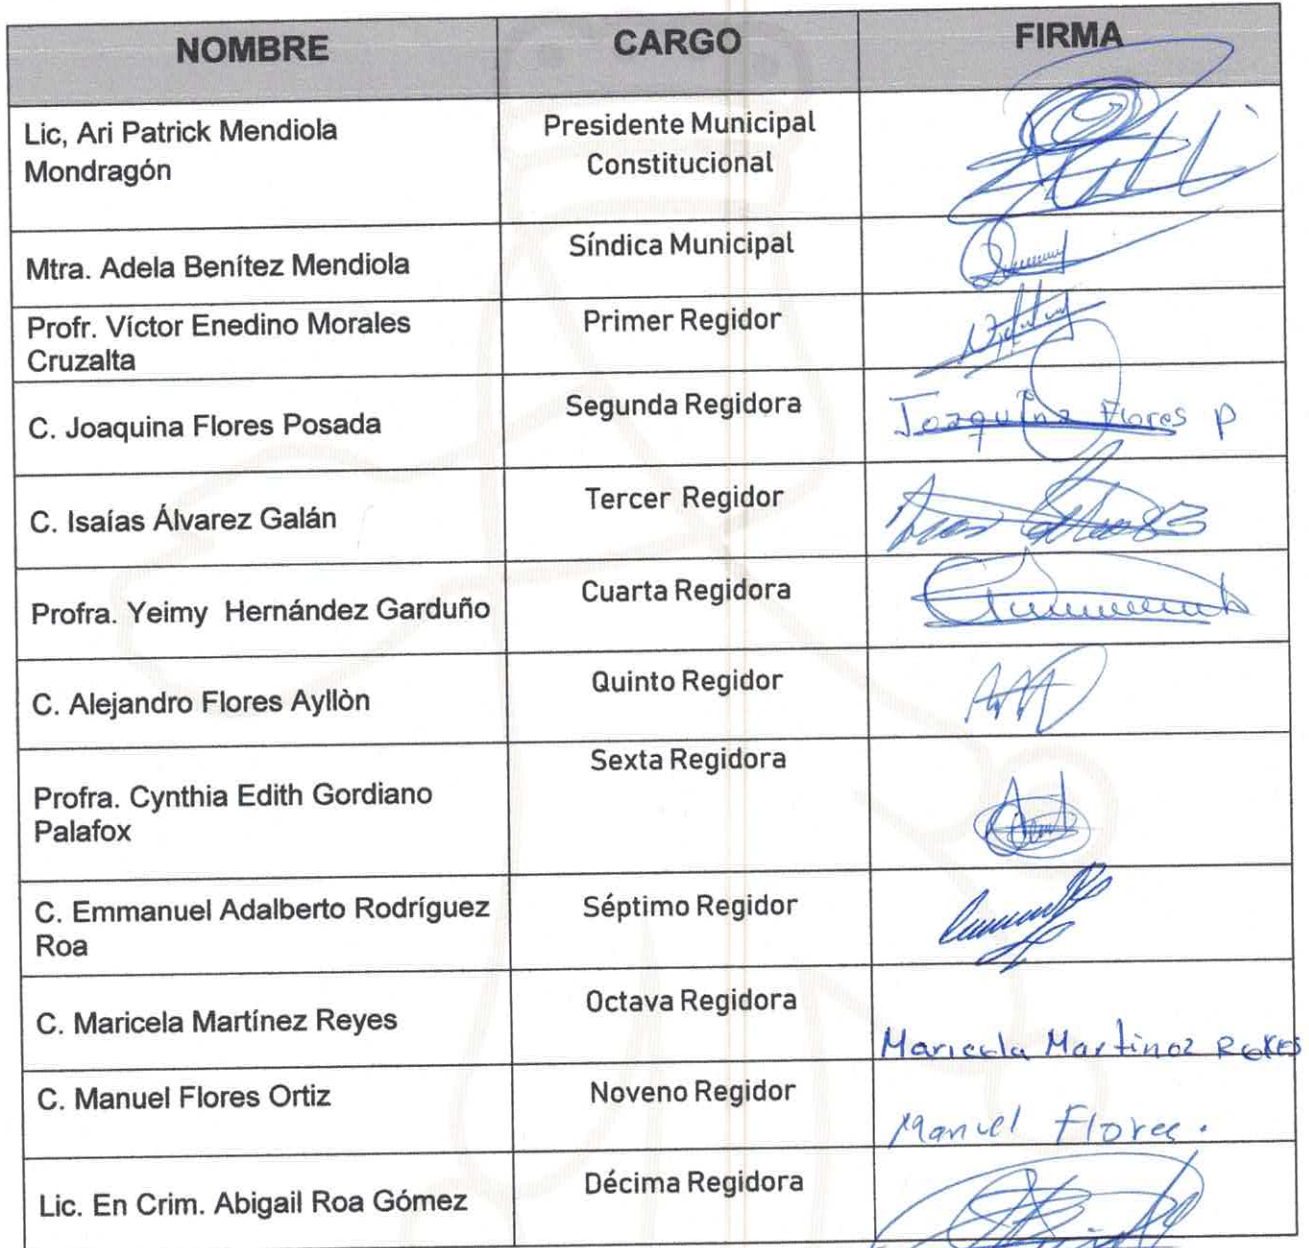 NOMBRE CARGO FIRMA
Lic, Ari Patrick Mendiola
Mondragón
Presidente Municipal
Constitucional
Mtra. Adela Benítez Mendiola
Síndica Municipal
Profr. Víctor Enedino Morales
Cruzalta
Primer Regidor
C. Joaquina Flores Posada
Segunda Regidora
Joaquina Flores P
C. Isaías Álvarez Galán
Tercer Regidor
Profra. Yeimy Hernández Garduño
Cuarta Regidora
C. Alejandro Flores Ayllòn
Quinto Regidor
Profra. Cynthia Edith Gordiano
Palafox
Sexta Regidora
C. Emmanuel Adalberto Rodríguez
Roa
Séptimo Regidor
C. Maricela Martínez Reyes
Octava Regidora
Maricela Martinez Reyes
C. Manuel Flores Ortiz
Noveno Regidor
Manuel Flores.
Lic. En Crim. Abigail Roa Gómez
Décima Regidora